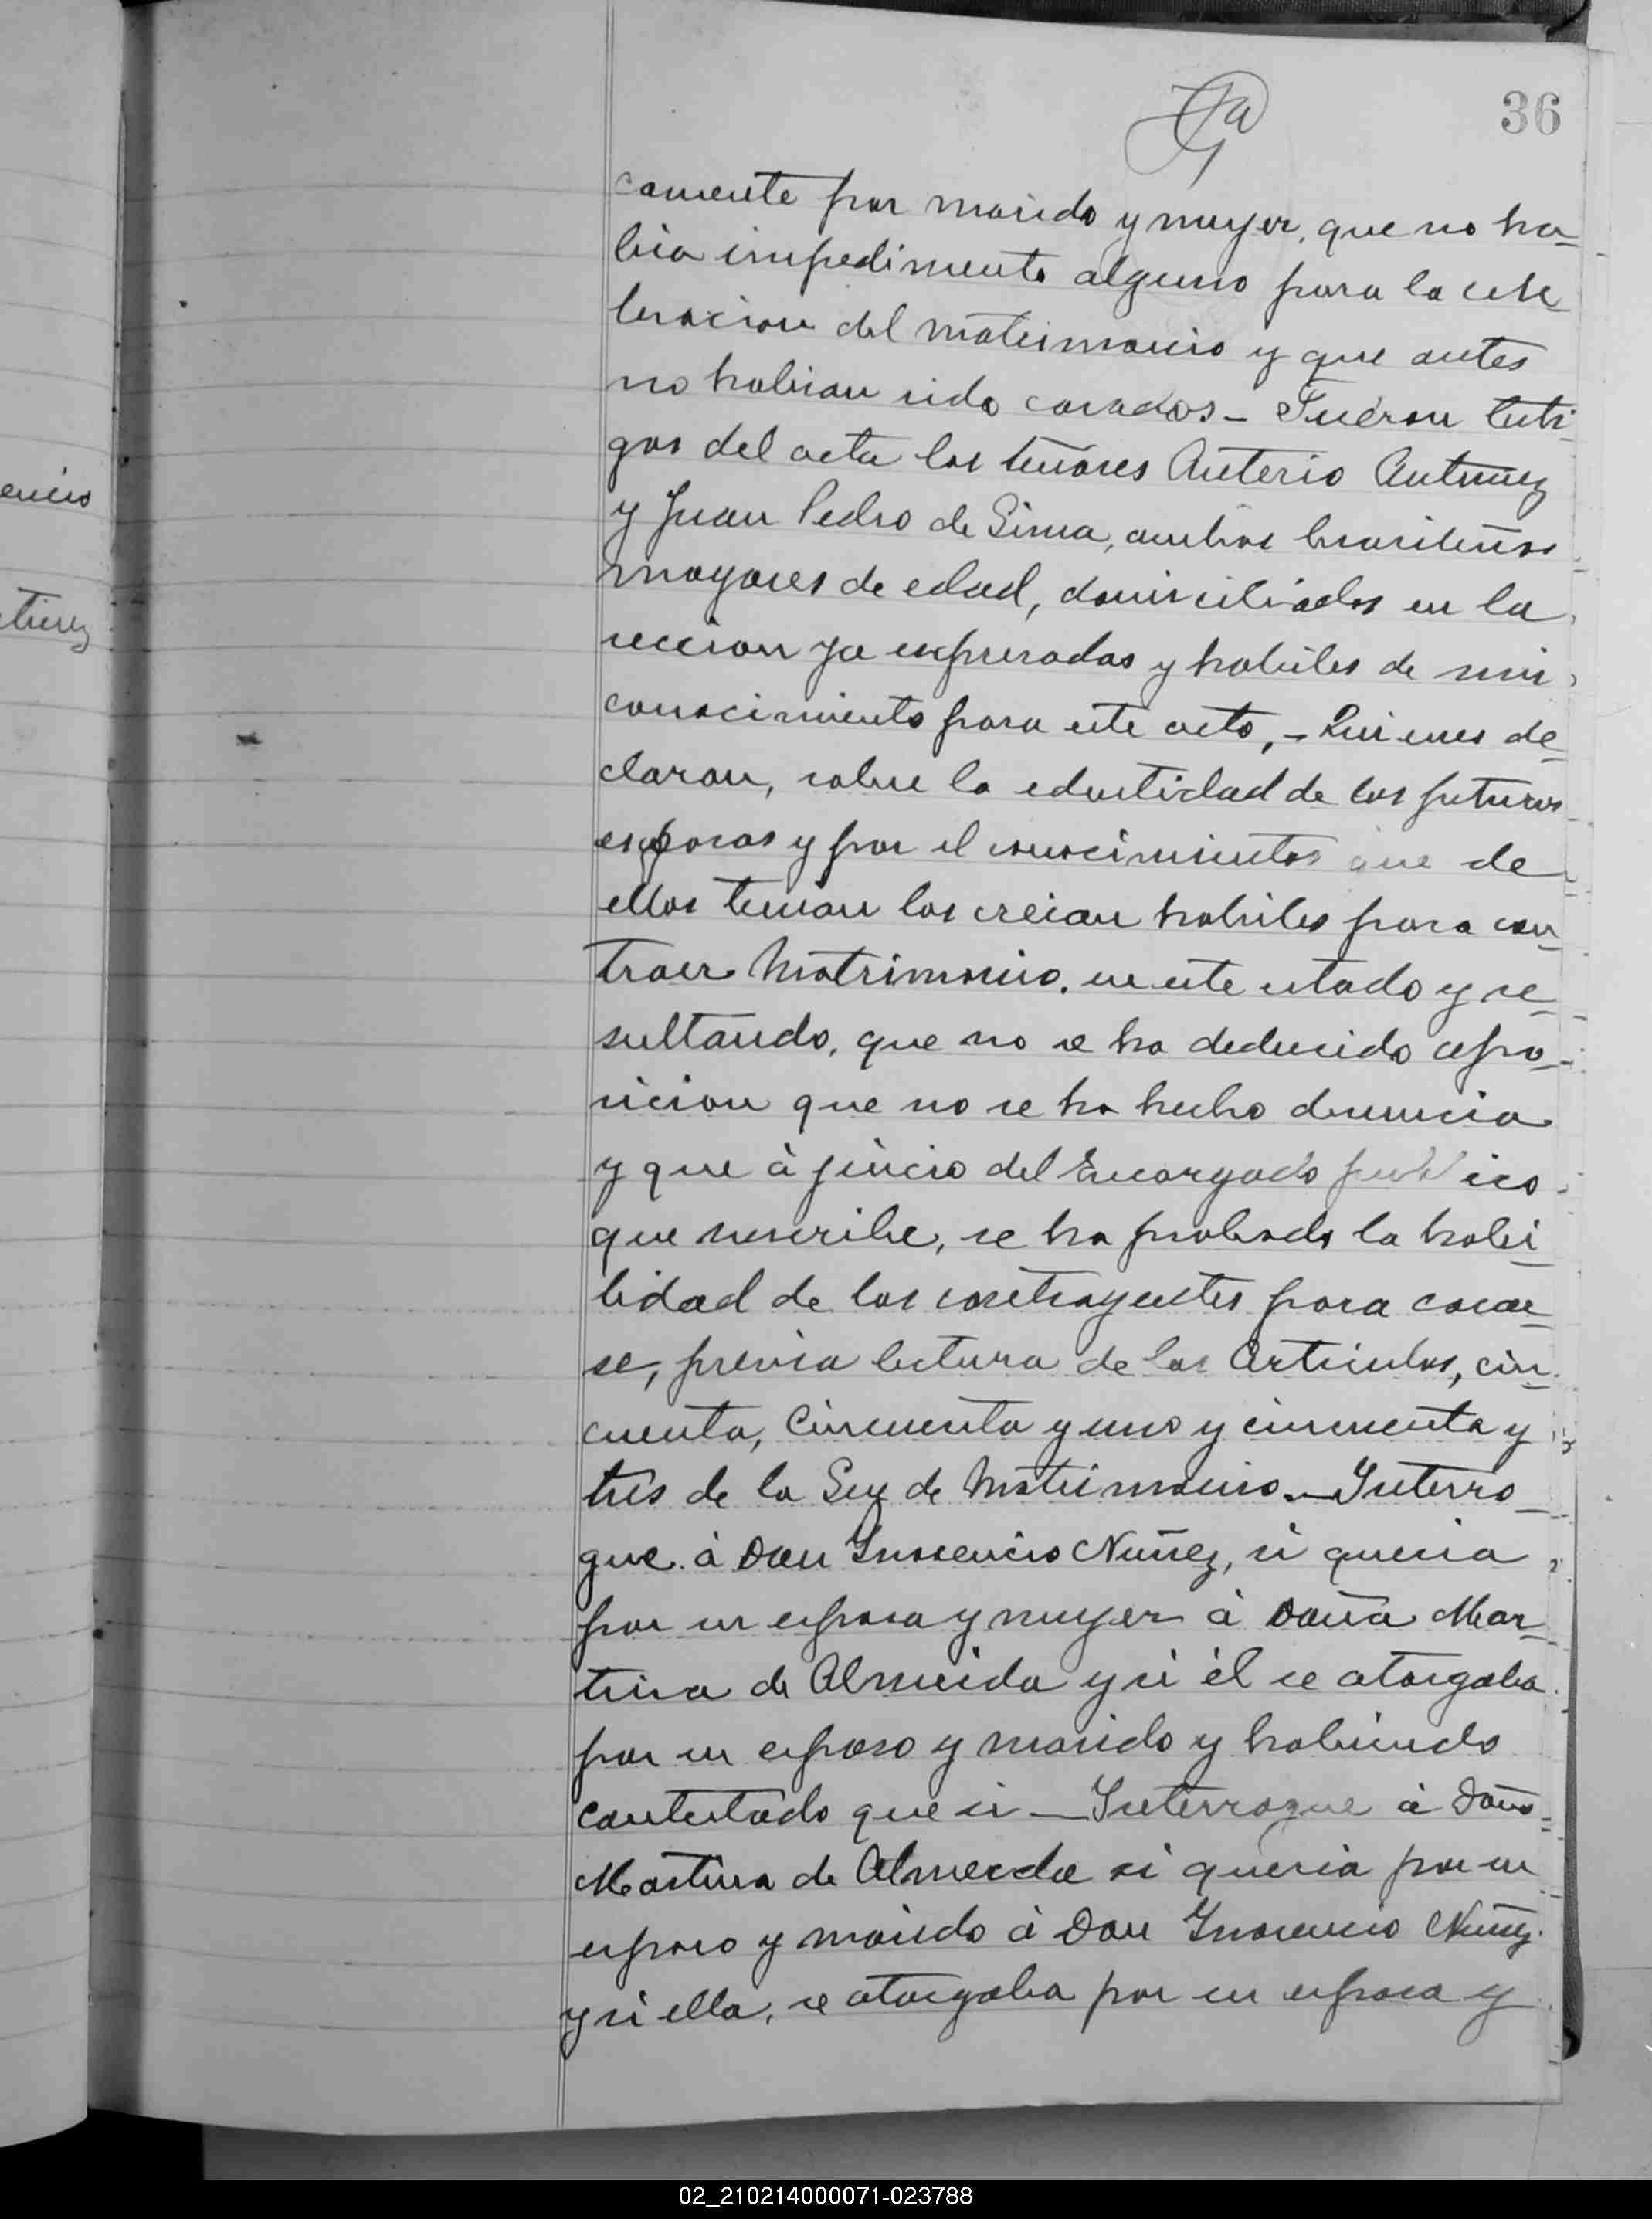 36
camente por marido y muger, que no ha-
bia impedimento alguno para la cele
bracion del matrimonio y que antes
no habian sido casados - Fueron testi-
gos del acta los señores Anterio Antunez
y Juan Pedro de Lima, ambos brasileños
mayores de edad, domiciliados en la
seccion ya espresadas y habiles de mi
conocimiento para este acto, - Quienes de-
claran, sobre la edentidad de los futuros
esposos y por el conocimientos que de
ellos tenian los creian habiles para con-
traer Matrimonio. en este estado y re-
sultando, que no se ha deducido opo-
sicion que no se ha hecho denuncia
y que à juicio del Encargado publico
que suscribe, se ha probado la habi-
lidad de los contrayentes para casar-
se, previa lectura de los Articulos, cin-
cuenta, Cincuenta y uno y cincuenta y
tres de la Ley de Matrimonio. - Interro-
gue à Don Inocencio Nuñez, si queria
por su esposa y muger à Doña Mar-
tina de Almeida y si èl se otorgaba
por su esposo y marido y habiendo
contestado que si - Interrogue à Doña
Martina de Almeida si queria por su
esposo y marido à Don Inocencio Nuñez
y si ella, se otorgaba por su esposa y
encio
02_210214000071-023788